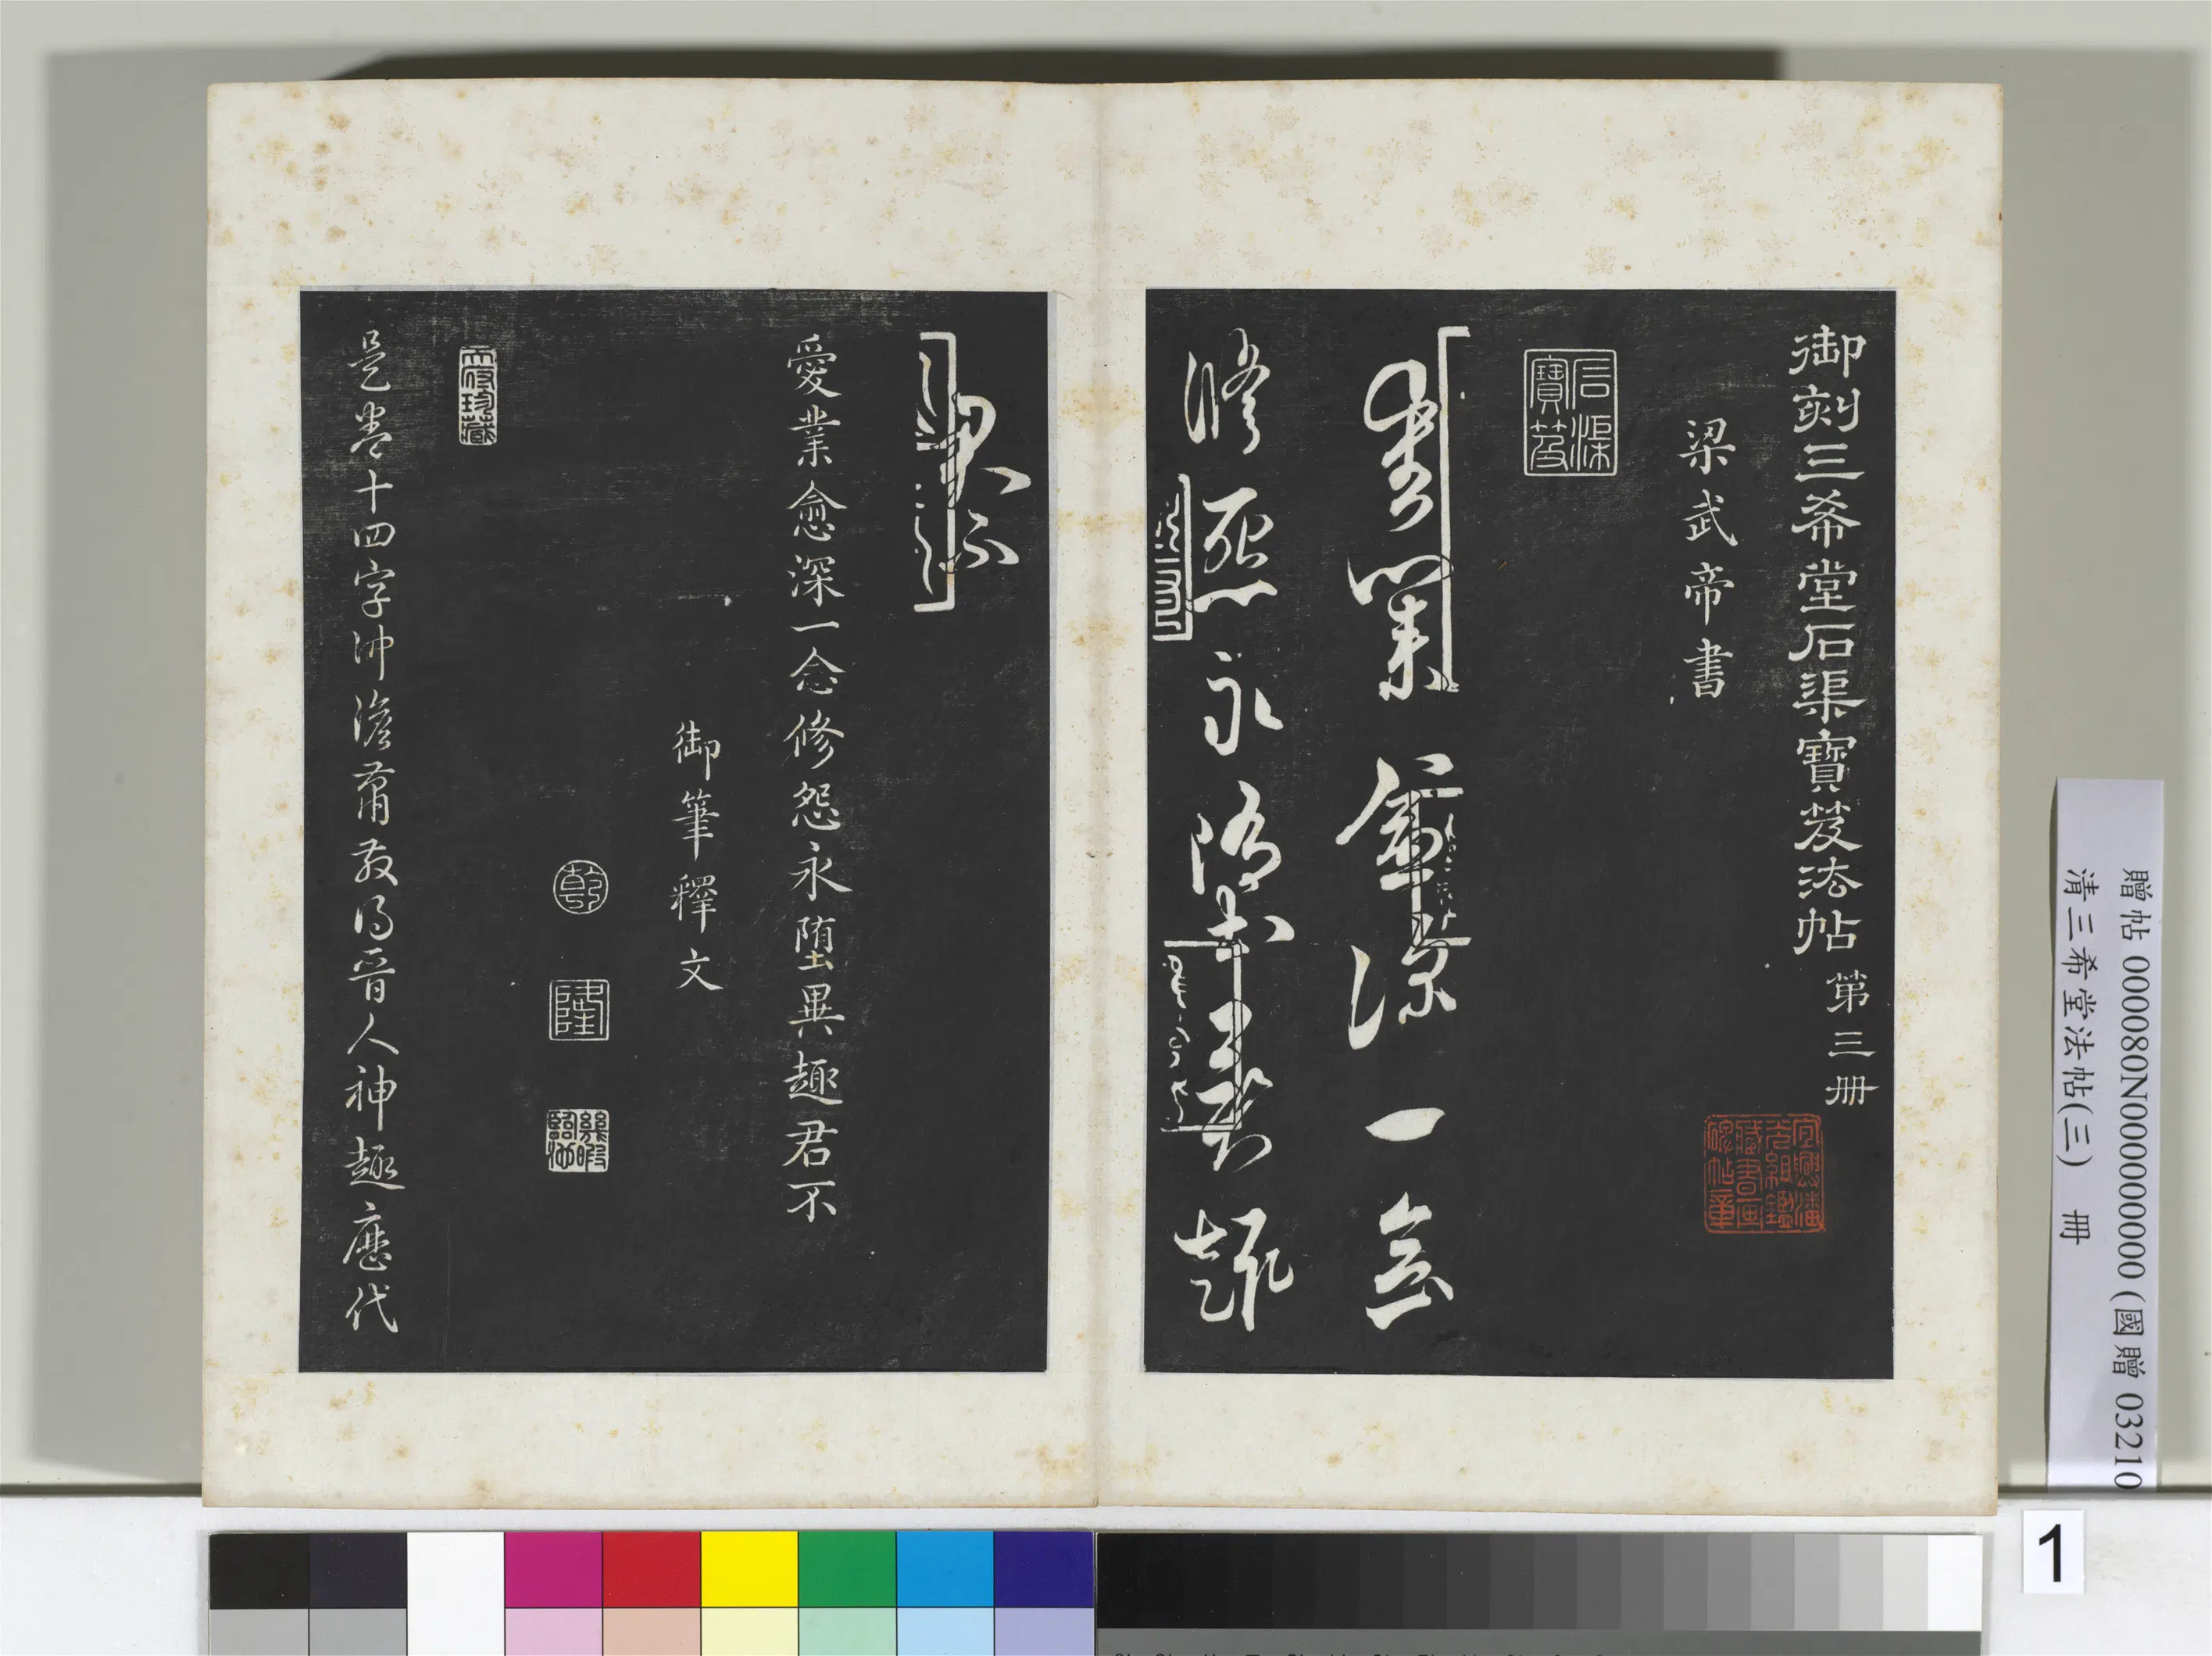 御刻三希堂石渠寶笈法帖第三册
梁武帝書
石渠寶笈
愛業愈深一念
修怨永墮異趣
君不
愛業愈深一念修怨永堕異趣君不
御筆釋文
乾
隆
幾暇臨池
是卷十四字沖澹蕭散得晉人神趣歷代
贈帖 000080N000000000 (國贈 03210
清三希堂法帖(三) 冊
1